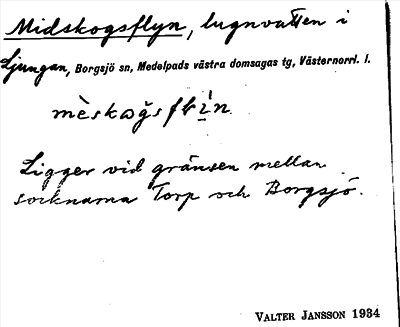 Midskogsflyn, lugnvatten i
Ljungan, Borgsjö sn, Medelpads västra domsagas tg, Västernorrl. l.
Ligger vid gränsen mellan
socknarna Torp och Borgsjö.
VALTER JANSSON 1934